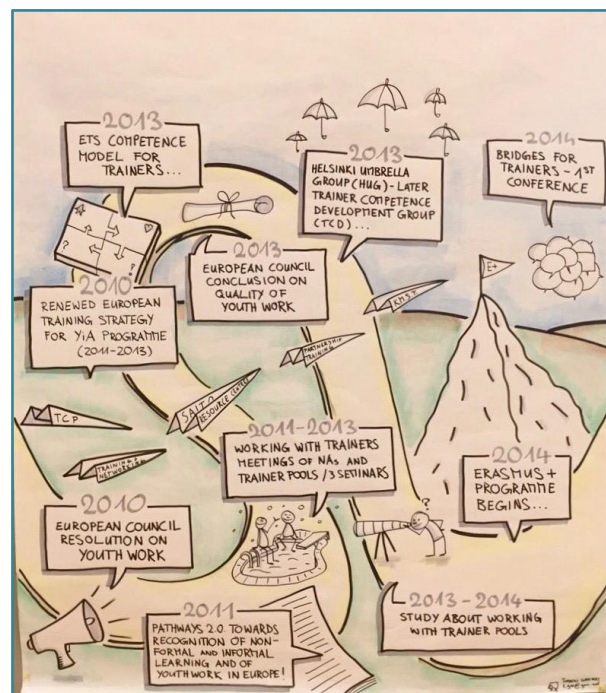 2013
ETS COMPETENCE
MODEL FOR
TRAINERS...
2013
HELSINKI UMBRELLA
GROUP (HUG) - LATER
TRAINER COMPETENCE
DEVELOPMENT GROUP
(TCD)...
2014
BRIDGES FOR
TRAINERS - 1ST
CONFERENCE
2013
EUROPEAN COUNCIL
CONCLUSION ON
QUALITY OF
YOUTH WORK
E+
2010
RENEWED EUROPEAN
TRAINING STRATEGY
FOR YiA PROGRAMME
(2011-2013)
RMST
PARTNERSHIP
TRAINING
SALTO
RESOURCE CENTERS
TCP
TRAINING &
NETWORKING
2011-2013
WORKING WITH TRAINERS
MEETINGS OF NAs AND
TRAINER POOLS / 3 SEMINARS
2014
ERASMUS +
PROGRAMME
BEGINS...
2010
EUROPEAN COUNCIL
RESOLUTION ON
YOUTH WORK
?
2011
PATHWAYS 2.0. TOWARDS
RECOGNITION OF NON-
FORMAL AND INFORMAL
LEARNING AND OF
YOUTH WORK IN EUROPE!
2013-2014
STUDY ABOUT WORKING
WITH TRAINER POOLS